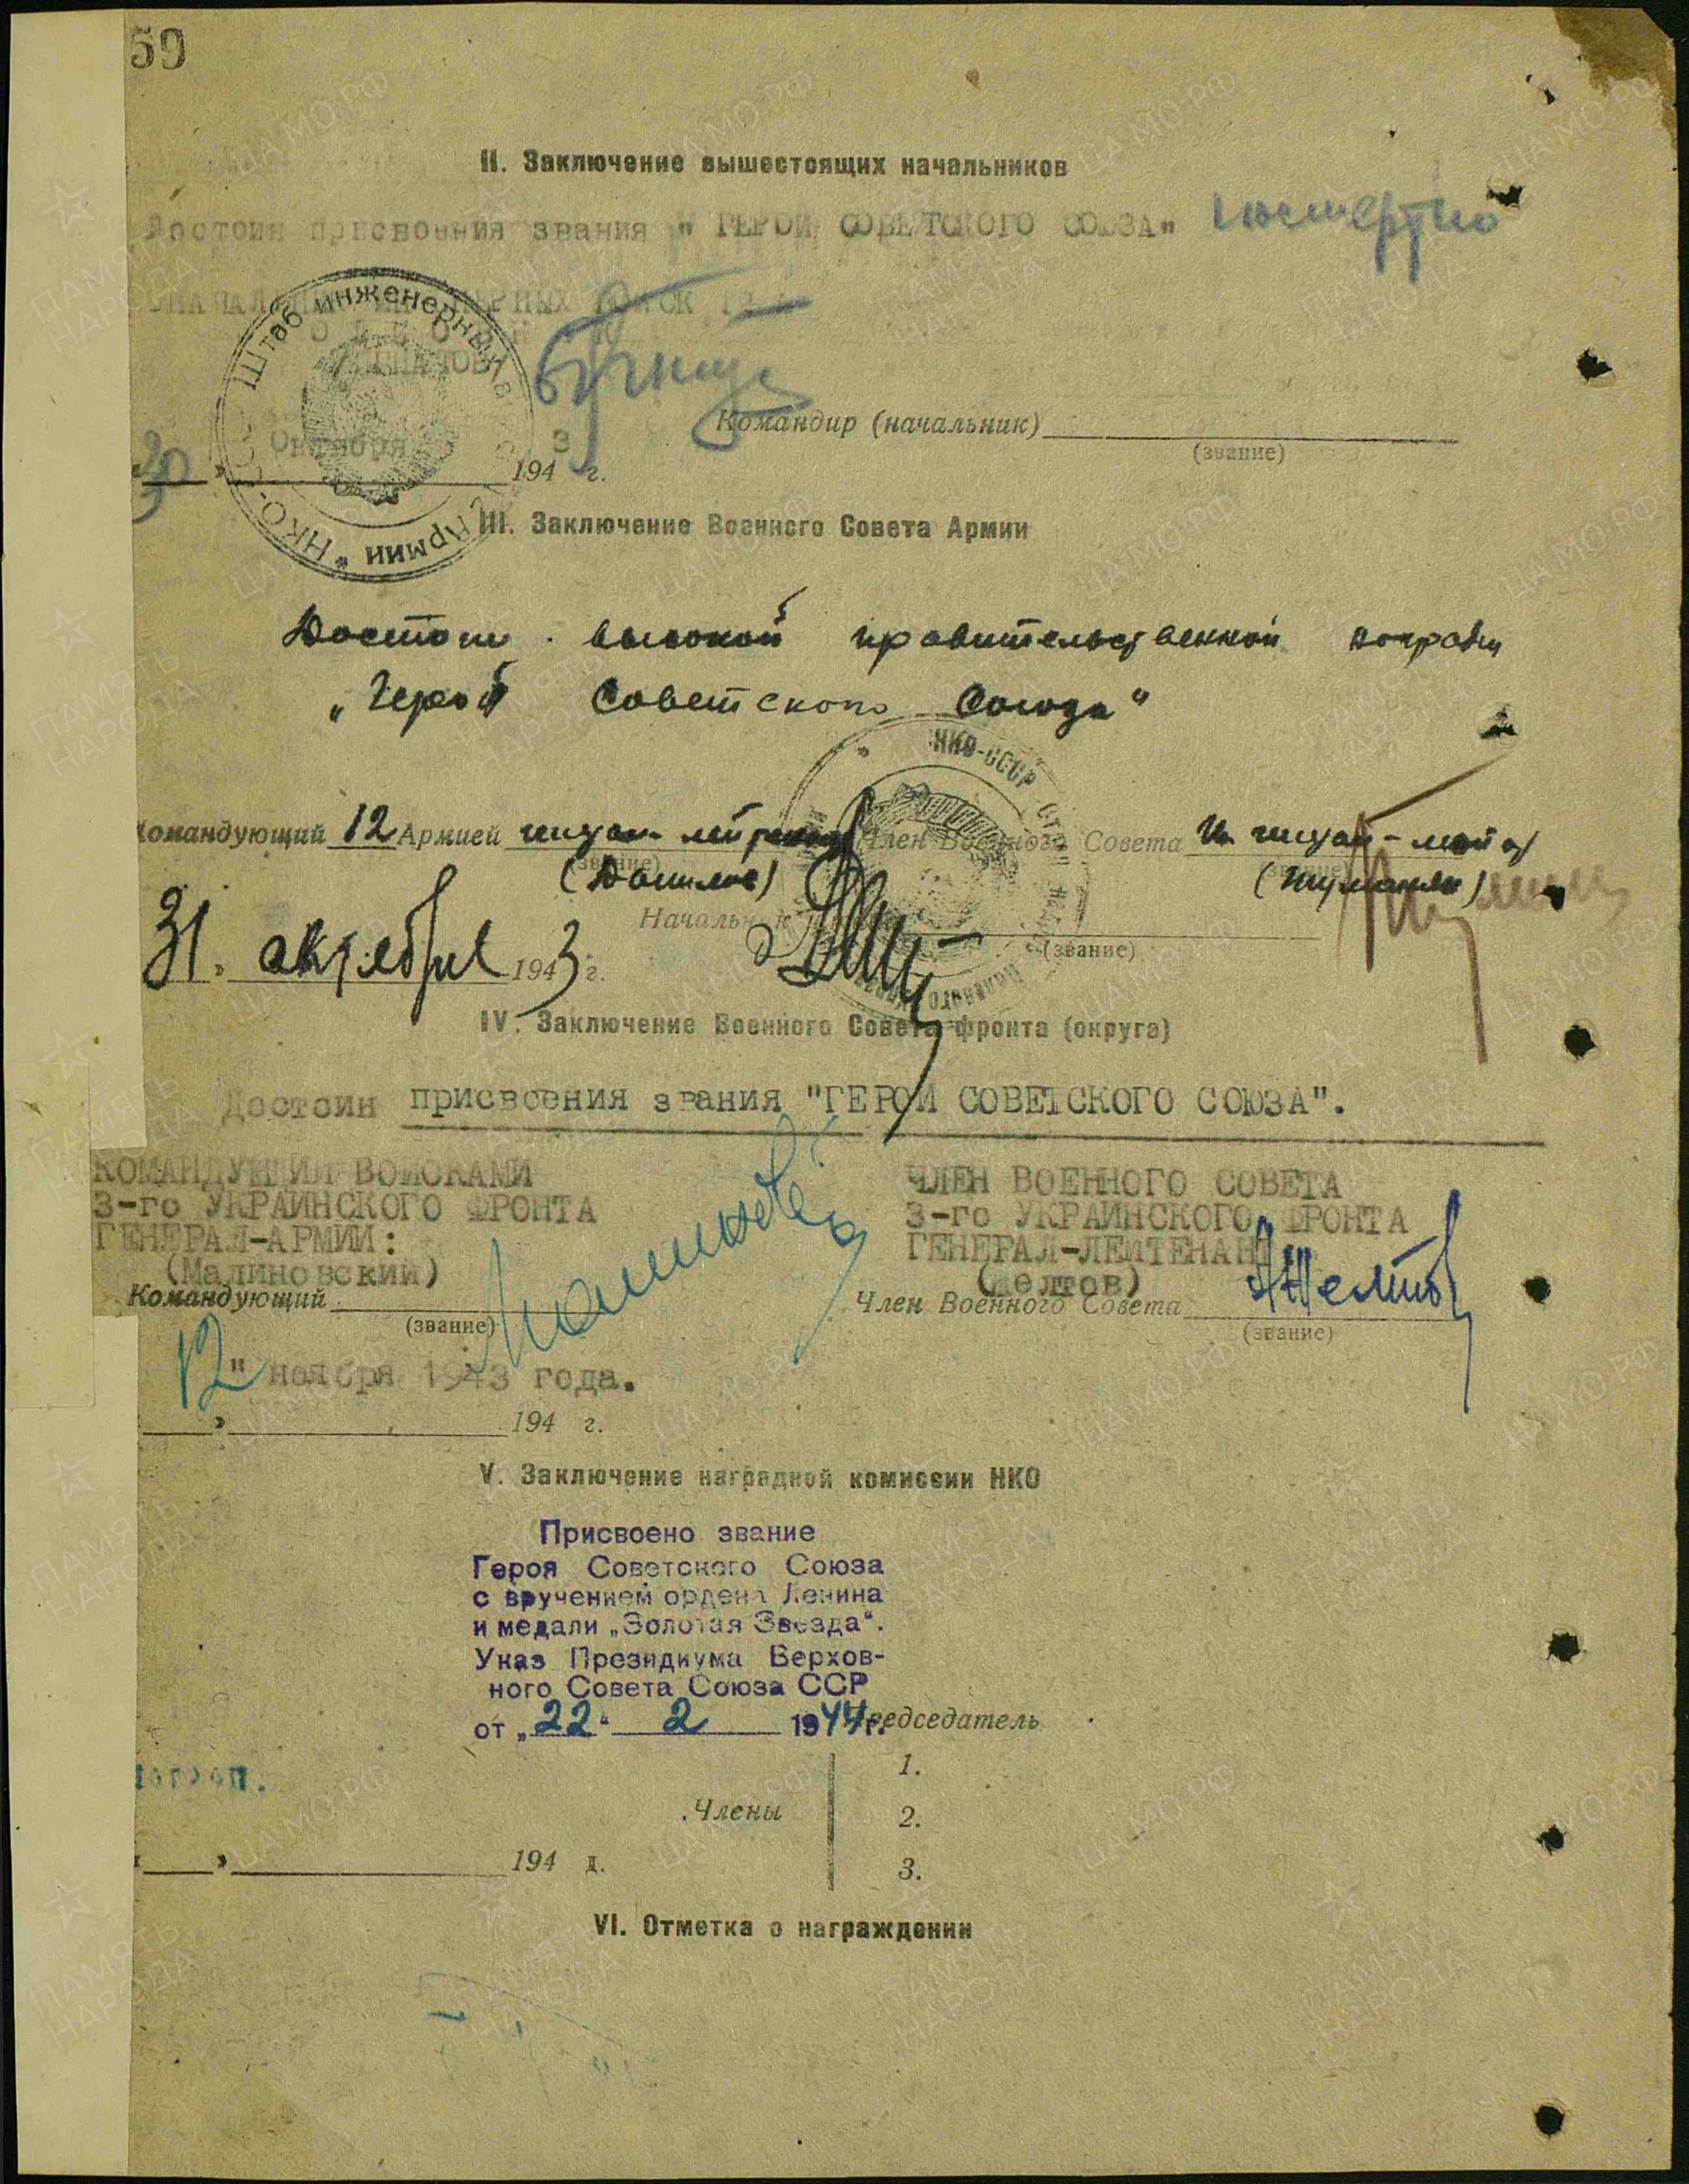 59
II. Заключение вышестоящих начальников
Достоин присвоения звания "ГЕРОЙ СОВЕТСКОГО СОЮЗА" посмертно
Штаб инженерных
Армии * НКО-СССР
Октября
"30" 1943 г.
Командир (начальник)
(звание)
III. Заключение Военного Совета Армии
Достоин высокой правительственной награды
„Герой Советского Союза"
НКО-СССР
Командующий 12 Армией гвардии Член Военного Совета гвардии
(звание)
(Данилов)
Начальник
(звание)
31. октября 1943 г.
IV. Заключение Военного Совета фронта (округа)
Достоин присвоения звания "ГЕРОЙ СОВЕТСКОГО СОЮЗА".
КОМАНДУЮЩИЙ ВОЙСКАМИ
3-го УКРАИНСКОГО ФРОНТА
ГЕНЕРАЛ-АРМИИ:
(Малиновский)
Командующий
(звание)
ЧЛЕН ВОЕННОГО СОВЕТА
3-го УКРАИНСКОГО ФРОНТА
ГЕНЕРАЛ-ЛЕЙТЕНАНТ:
(Желтов)
Член Военного Совета
(звание)
12" ноября 1943 года.
194 г.
V. Заключение наградной комиссии НКО
Присвоено звание
Героя Советского Союза
с вручением ордена Ленина
и медали „Золотая Звезда".
Указ Президиума Верхов-
ного Совета Союза ССР
от „22" 2 1944 г.
Председатель
1.
Члены
2.
194 г.
3.
VI. Отметка о награждении
ПАМЯТЬ НАРОДА
ЦАМО.РФ